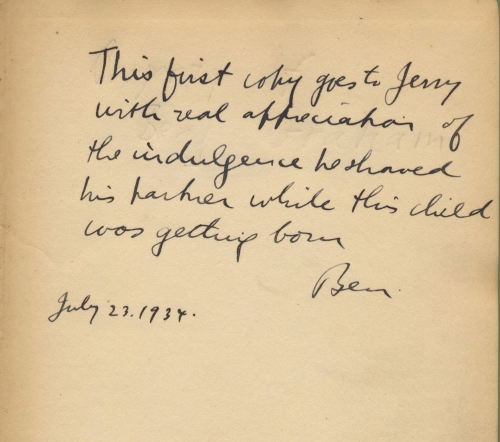 This first copy goes to Jerry
with real appreciation of
the indulgence he showed
his partner while this child
was getting born
Ben.
July 23. 1934.